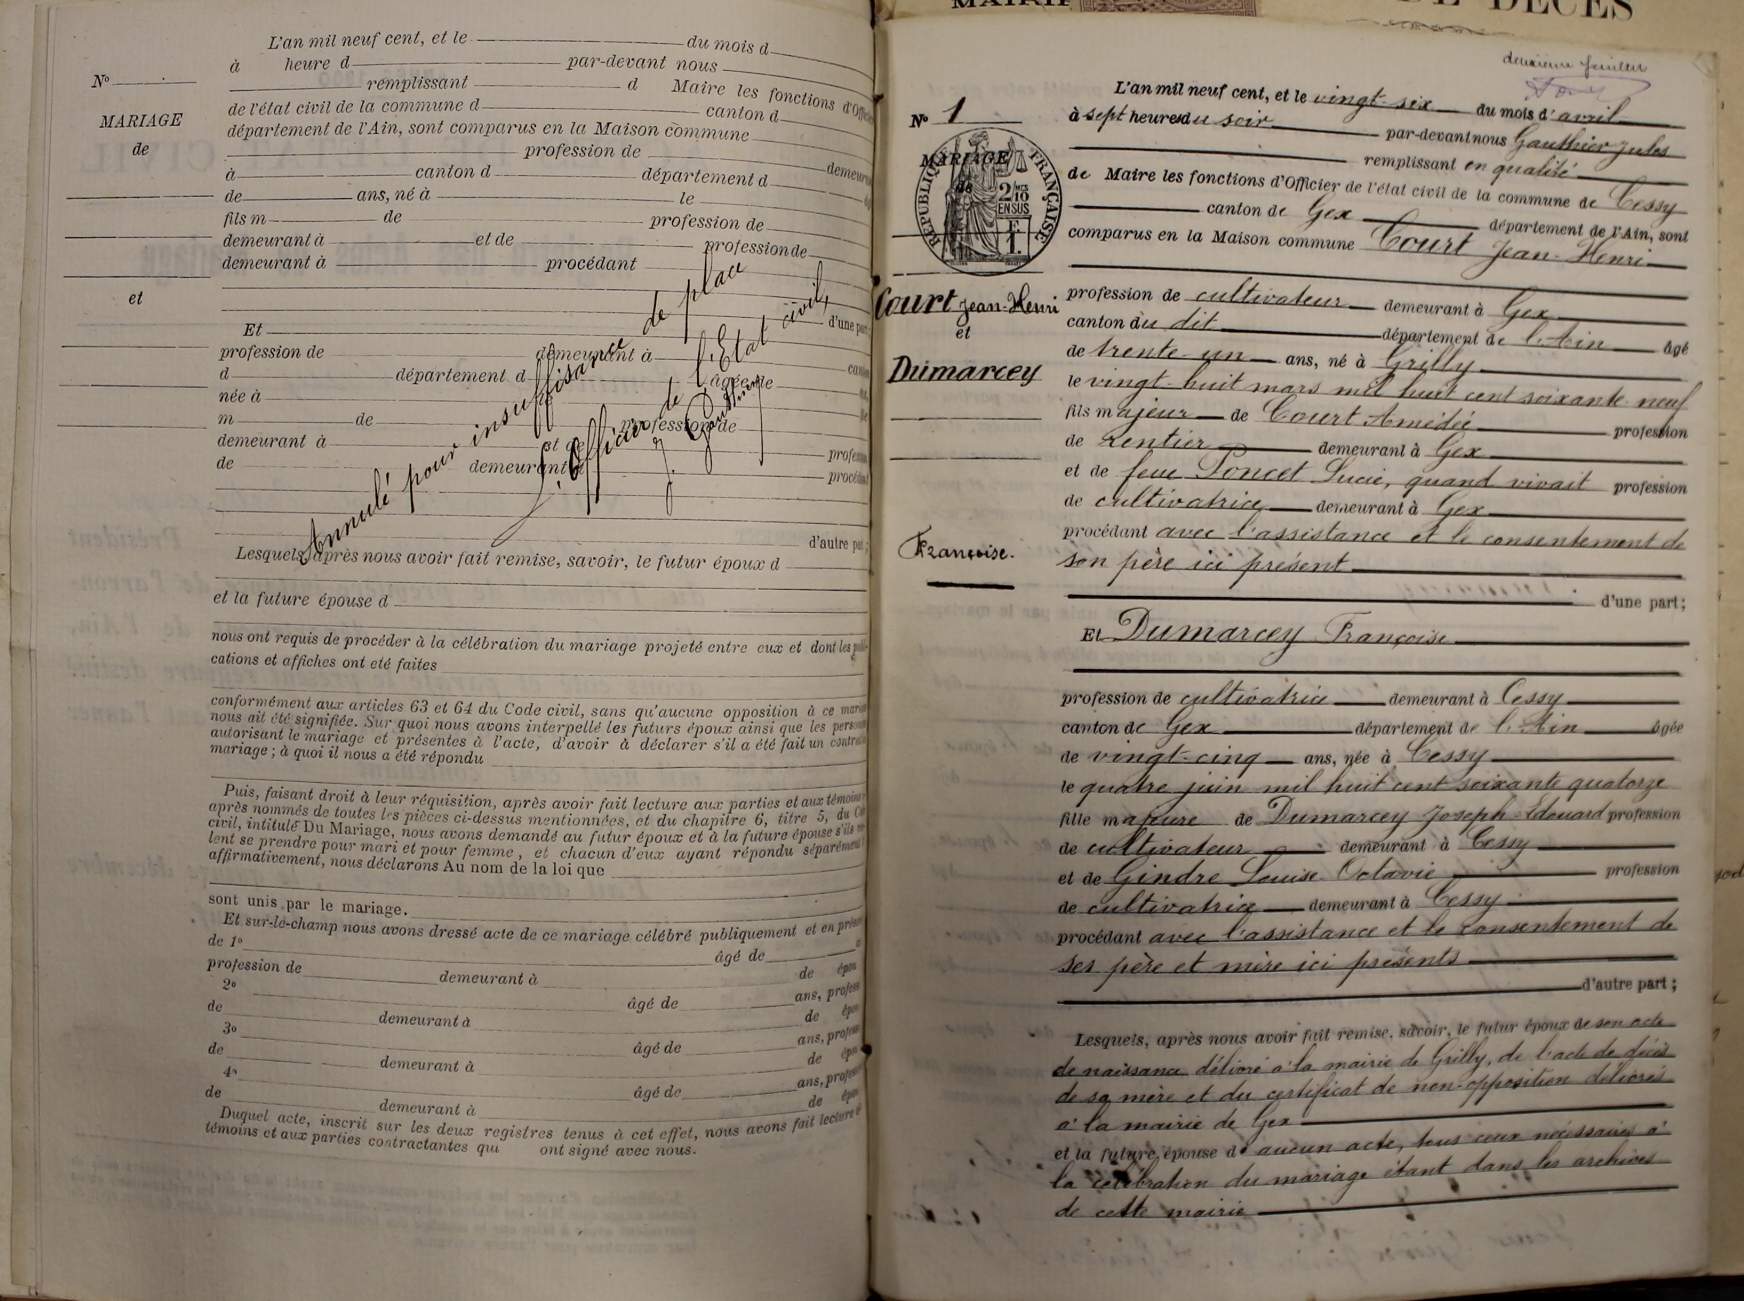 L'an mil neuf cent, et le du mois d
à heure d par-devant nous
remplissant d Maire les fonctions d'Officier
de l'état civil de la commune d canton d
département de l'Ain, sont comparus en la Maison commune
profession de
à canton d département d demeurant
de ans, né à le
fils m de profession de
demeurant à et de profession de
demeurant à procédant
d'une part
Et
profession de demeurant à
d département d âgée de
née à
m de profession de
demeurant à et de profession
de demeurant à procédant
d'autre part;
Lesquels, après nous avoir fait remise, savoir, le futur époux d
et la future épouse d
nous ont requis de procéder à la célébration du mariage projeté entre eux et dont les publi-
cations et affiches ont été faites
conformément aux articles 63 et 64 du Code civil, sans qu'aucune opposition à ce maria
nous ait été signifiée. Sur quoi nous avons interpellé les futurs époux ainsi que les personn
autorisant le mariage et présentes à l'acte, d'avoir à déclarer s'il a été fait un contrat
mariage; à quoi il nous a été répondu
Puis, faisant droit à leur réquisition, après avoir fait lecture aux parties et aux témoins
après nommés de toutes les pièces ci-dessus mentionnées, et du chapitre 6, titre 5, du Co
civil, intitulé Du Mariage, nous avons demandé au futur époux et à la future épouse s'ils
lent se prendre pour mari et pour femme, et chacun d'eux ayant répondu séparément
affirmativement, nous déclarons Au nom de la loi que
sont unis par le mariage.
Et sur-le-champ nous avons dressé acte de ce mariage célébré publiquement et en prése
de 1° âgé de
profession de demeurant à de épou
2° âgé de ans, profess
de demeurant à de épou
3° âgé de ans, profess
de demeurant à de épou
4° âgé de ans, profess
de demeurant à de épou
Duquel acte, inscrit sur les deux registres tenus à cet effet, nous avons fait lecture
témoins et aux parties contractantes qui ont signé avec nous.
N°
MARIAGE
de
et
Annulé pour insuffisance de place
L'Officier de l'Etat civil,
J. Gauthier
MAIRIE
DE DÉCÈS
deuxième feuillet
N° 1
MARIAGE
de
RÉPUBLIQUE FRANÇAISE
2/10
EN SUS
Court Jean-Henri
et
Dumarcey
Françoise.
L'an mil neuf cent, et le vingt-six du mois d'avril
à sept heures du soir par-devant nous Gauthier Jules
remplissant en qualité
de Maire les fonctions d'Officier de l'état civil de la commune de Cessy
canton de Gex département de l'Ain, sont
comparus en la Maison commune Court Jean-Henri
profession de cultivateur demeurant à Gex
canton du dit département de l'Ain âgé
de trente-un ans, né à Grilly
le vingt-huit mars mil huit cent soixante neuf
fils majeur de Court Amédée profession
de rentier demeurant à Gex
et de feue Poncet Lucie, quand vivait profession
de cultivatrice demeurant à Gex
procédant avec l'assistance et le consentement de
son père ici présent
d'une part;
Et Dumarcey Françoise
profession de cultivatrice demeurant à Cessy
canton de Gex département de l'Ain âgée
de vingt-cinq ans, née à Cessy
le quatre juin mil huit cent soixante quatorze
fille majeure de Dumarcey Joseph-Edouard profession
de cultivateur demeurant à Cessy
et de Gindre Louise Octavie profession
de cultivatrice demeurant à Cessy
procédant avec l'assistance et le consentement de
ses père et mère ici présents
d'autre part;
Lesquels, après nous avoir fait remise, savoir, le futur époux de son acte
de naissance délivré à la mairie de Grilly, de l'acte de décès
de sa mère et du certificat de non-opposition délivrés
à la mairie de Gex
et la future épouse d'aucun acte, tous ceux nécessaires à
la célébration du mariage étant dans les archives
de cette mairie